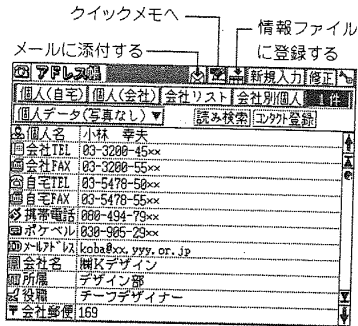 クイックメモへ
メールに添付する
情報ファイルに登録する
アドレス帳 新規入力 修正
個人(自宅) 個人(会社) 会社リスト 会社別個人 1件
個人データ(写真なし)▼ 読み検索 コンタクト登録
個人名 小林 幸夫
会社TEL 03-3200-45××
会社FAX 03-3200-55××
自宅TEL 03-5478-50××
自宅FAX 03-5478-55××
携帯電話 080-494-79××
ポケベル 030-905-29××
メールアドレス koba@xx.yyy.or.jp
会社名 ㈱Kデザイン
所属 デザイン部
役職 チーフデザイナー
〒会社郵便 169